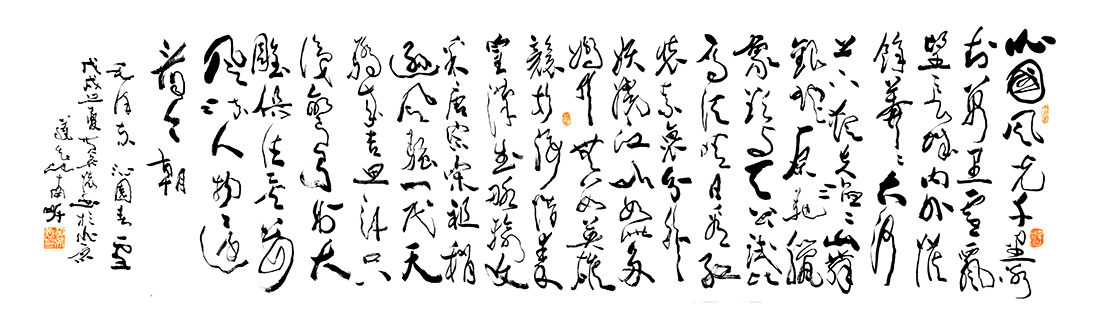 北國风光千里冰
封万里雪飘
望长城内外惟
馀莽莽大河
上下顿失滔滔山舞
银蛇原驰蜡
象欲与天公试比
高须晴日看红
装素裹分外
妖娆江山如此多
娇引无数英雄
竞折腰惜秦皇
汉武略输文
采唐宗宋祖稍
逊风骚一代天
骄成吉思汗只
识弯弓射大
雕俱往矣数
风流人物还
看今朝
毛泽东 沁园春雪
戊戌 夏 於北京